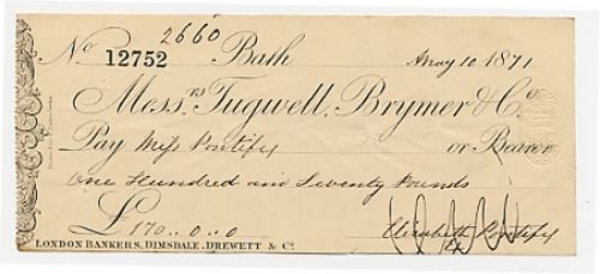 2660
No 12752 Bath May 10 1871
Messrs Tugwell, Brymer & Co
Pay Miss Pontifex or Bearer
One Hundred and Seventy Pounds
£170..0..0
Elizabeth Pontifex
LONDON BANKERS, DIMSDALE, DREWETT & Co.